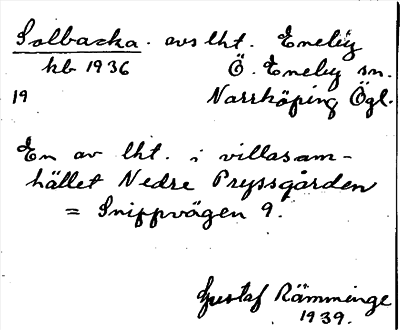 Solbacka. avs lht. Eneby
kb 1936 Ö. Eneby sn.
19 Norrköping Ögl.
En av lht. i villasam-
hället Nedre Pryssgården
= Snippvägen 9.
Gustaf Rämminge
1939.